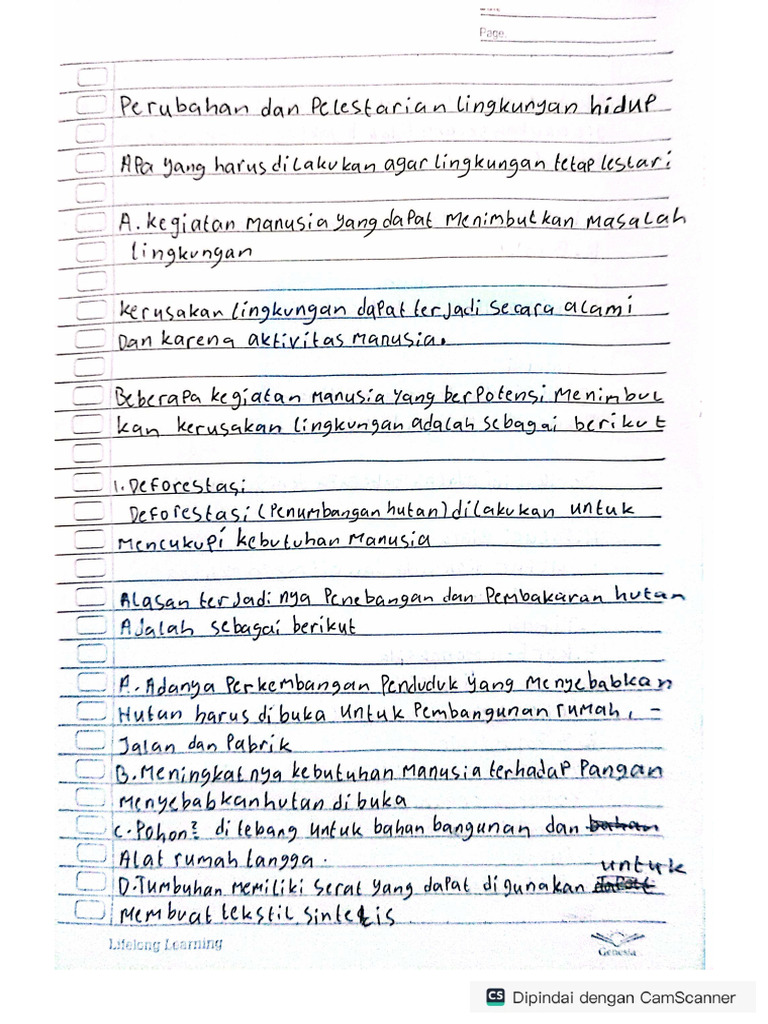 Page.
Perubahan dan Pelestarian lingkungan hidup
Apa yang harus dilakukan agar lingkungan tetap lestari
A. kegiatan manusia yang dapat menimbulkan masalah
lingkungan
kerusakan lingkungan dapat terjadi secara alami
Dan karena aktivitas manusia.
Beberapa kegiatan manusia yang berpotensi menimbul
kan kerusakan lingkungan adalah sebagai berikut
1. Deforestasi
Deforestasi (Penumbangan hutan) dilakukan untuk
mencukupi kebutuhan manusia
Alasan terjadi nya Penebangan dan Pembakaran hutan
Adalah sebagai berikut
A. Adanya Perkembangan Penduduk yang menyebabkan
Hutan harus dibuka untuk Pembangunan rumah, -
Jalan dan Pabrik
B. Meningkatnya kebutuhan manusia terhadap Pangan
menyebabkan hutan dibuka
C. Pohon² ditebang untuk bahan bangunan dan bahan
Alat rumah tangga.
untuk
D. Tumbuhan memiliki serat yang dapat digunakan
membuat tekstil sintetis
Lifelong Learning
Genesia
CS Dipindai dengan CamScanner